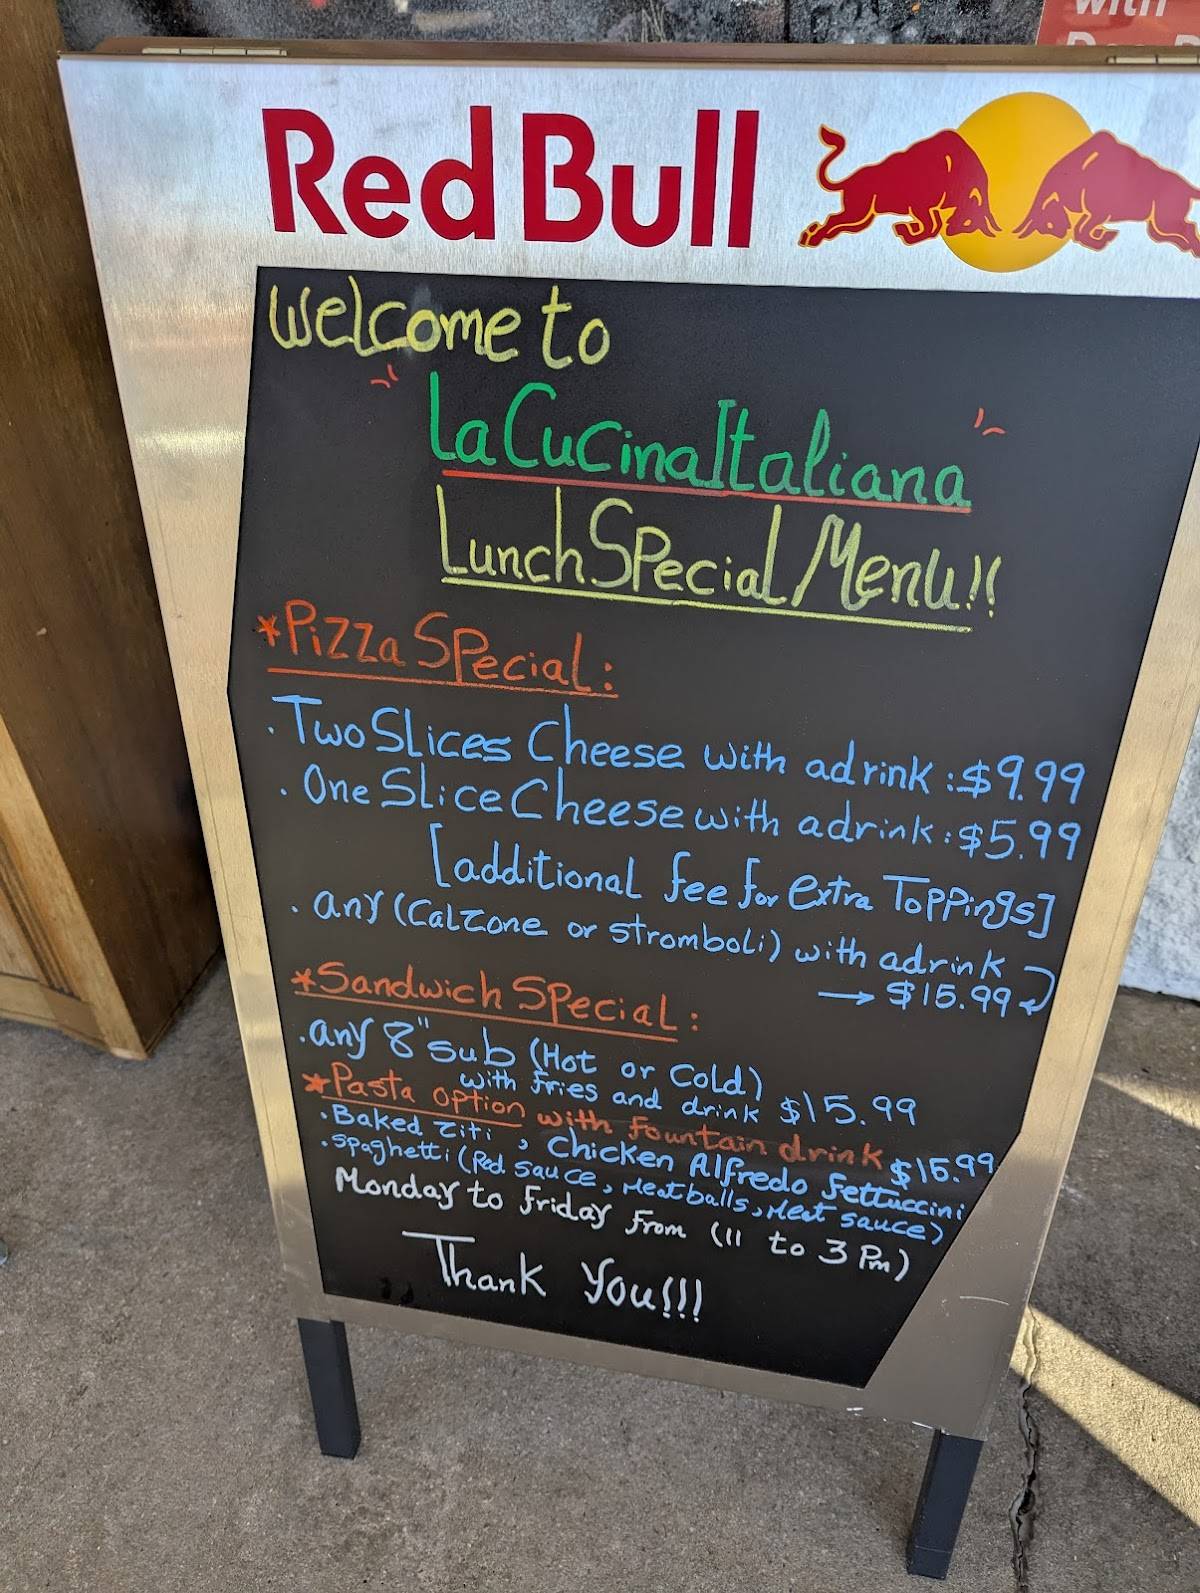 with
Red Bull
Welcome to
"La Cucina Italiana"
Lunch Special Menu!!
*Pizza Special:
. Two Slices Cheese with a drink : $9.99
. One Slice Cheese with a drink : $5.99
[additional fee for extra Toppings]
. any (Calzone or stromboli) with a drink
→ $15.99
*Sandwich Special:
. any 8" sub (Hot or Cold)
with fries and drink $15.99
*Pasta option with fountain drink $15.99
. Baked Ziti , Chicken Alfredo fettuccini
. spaghetti (Red sauce, Meatballs, Meat sauce)
Monday to friday from (11 to 3 Pm)
Thank You!!!